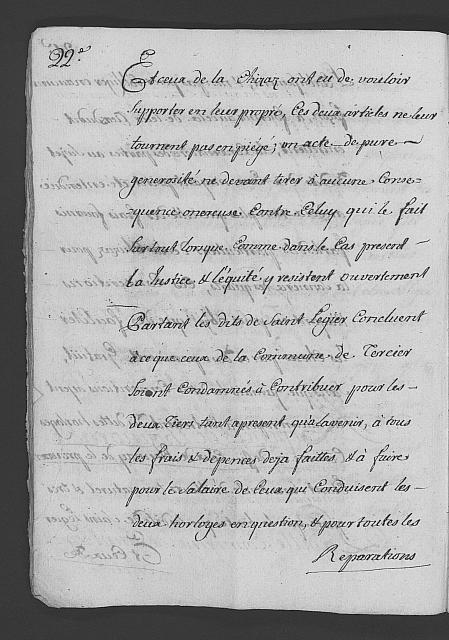 22.e
Et ceux de la Chizaz ont eu de vouloir
Supporter en leur propre, Ces deux articles ne leur
tournent pas en piege; un acte de pure
generosité ne devant tirer à aucune Conse-
quence onereuse Contre Celuy qui le fait
Surtout lorsque, comme dans le Cas present
La Justice, & l'équité y resistent ouvertement
Partant les dits de Saint Legier Concluent
à ce que ceux de la Commune de Tercier
Soient Condamnés à Contribuer pour les
deux Tiers tant apresent qu'alavenir, à tous
les frais & dépences deja faittes & à faire
pour le Salaire de Ceux qui Conduisent les
deux horloges en question, & pour toutes les
Reparations